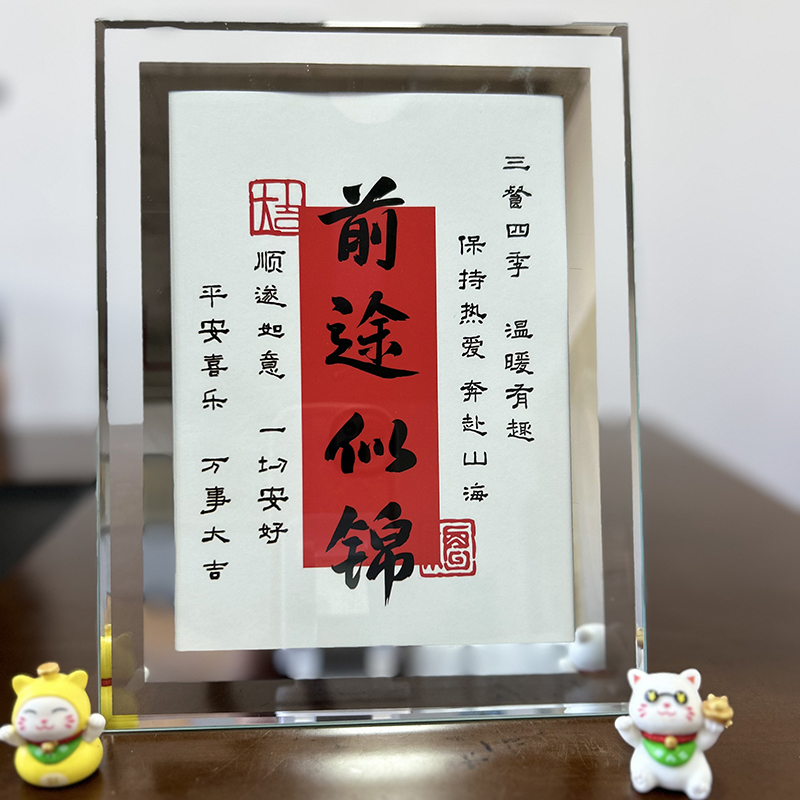 三餐四季 温暖有趣
保持热爱 奔赴山海
前途似锦
顺遂如意 一切安好
平安喜乐 万事大吉
大吉